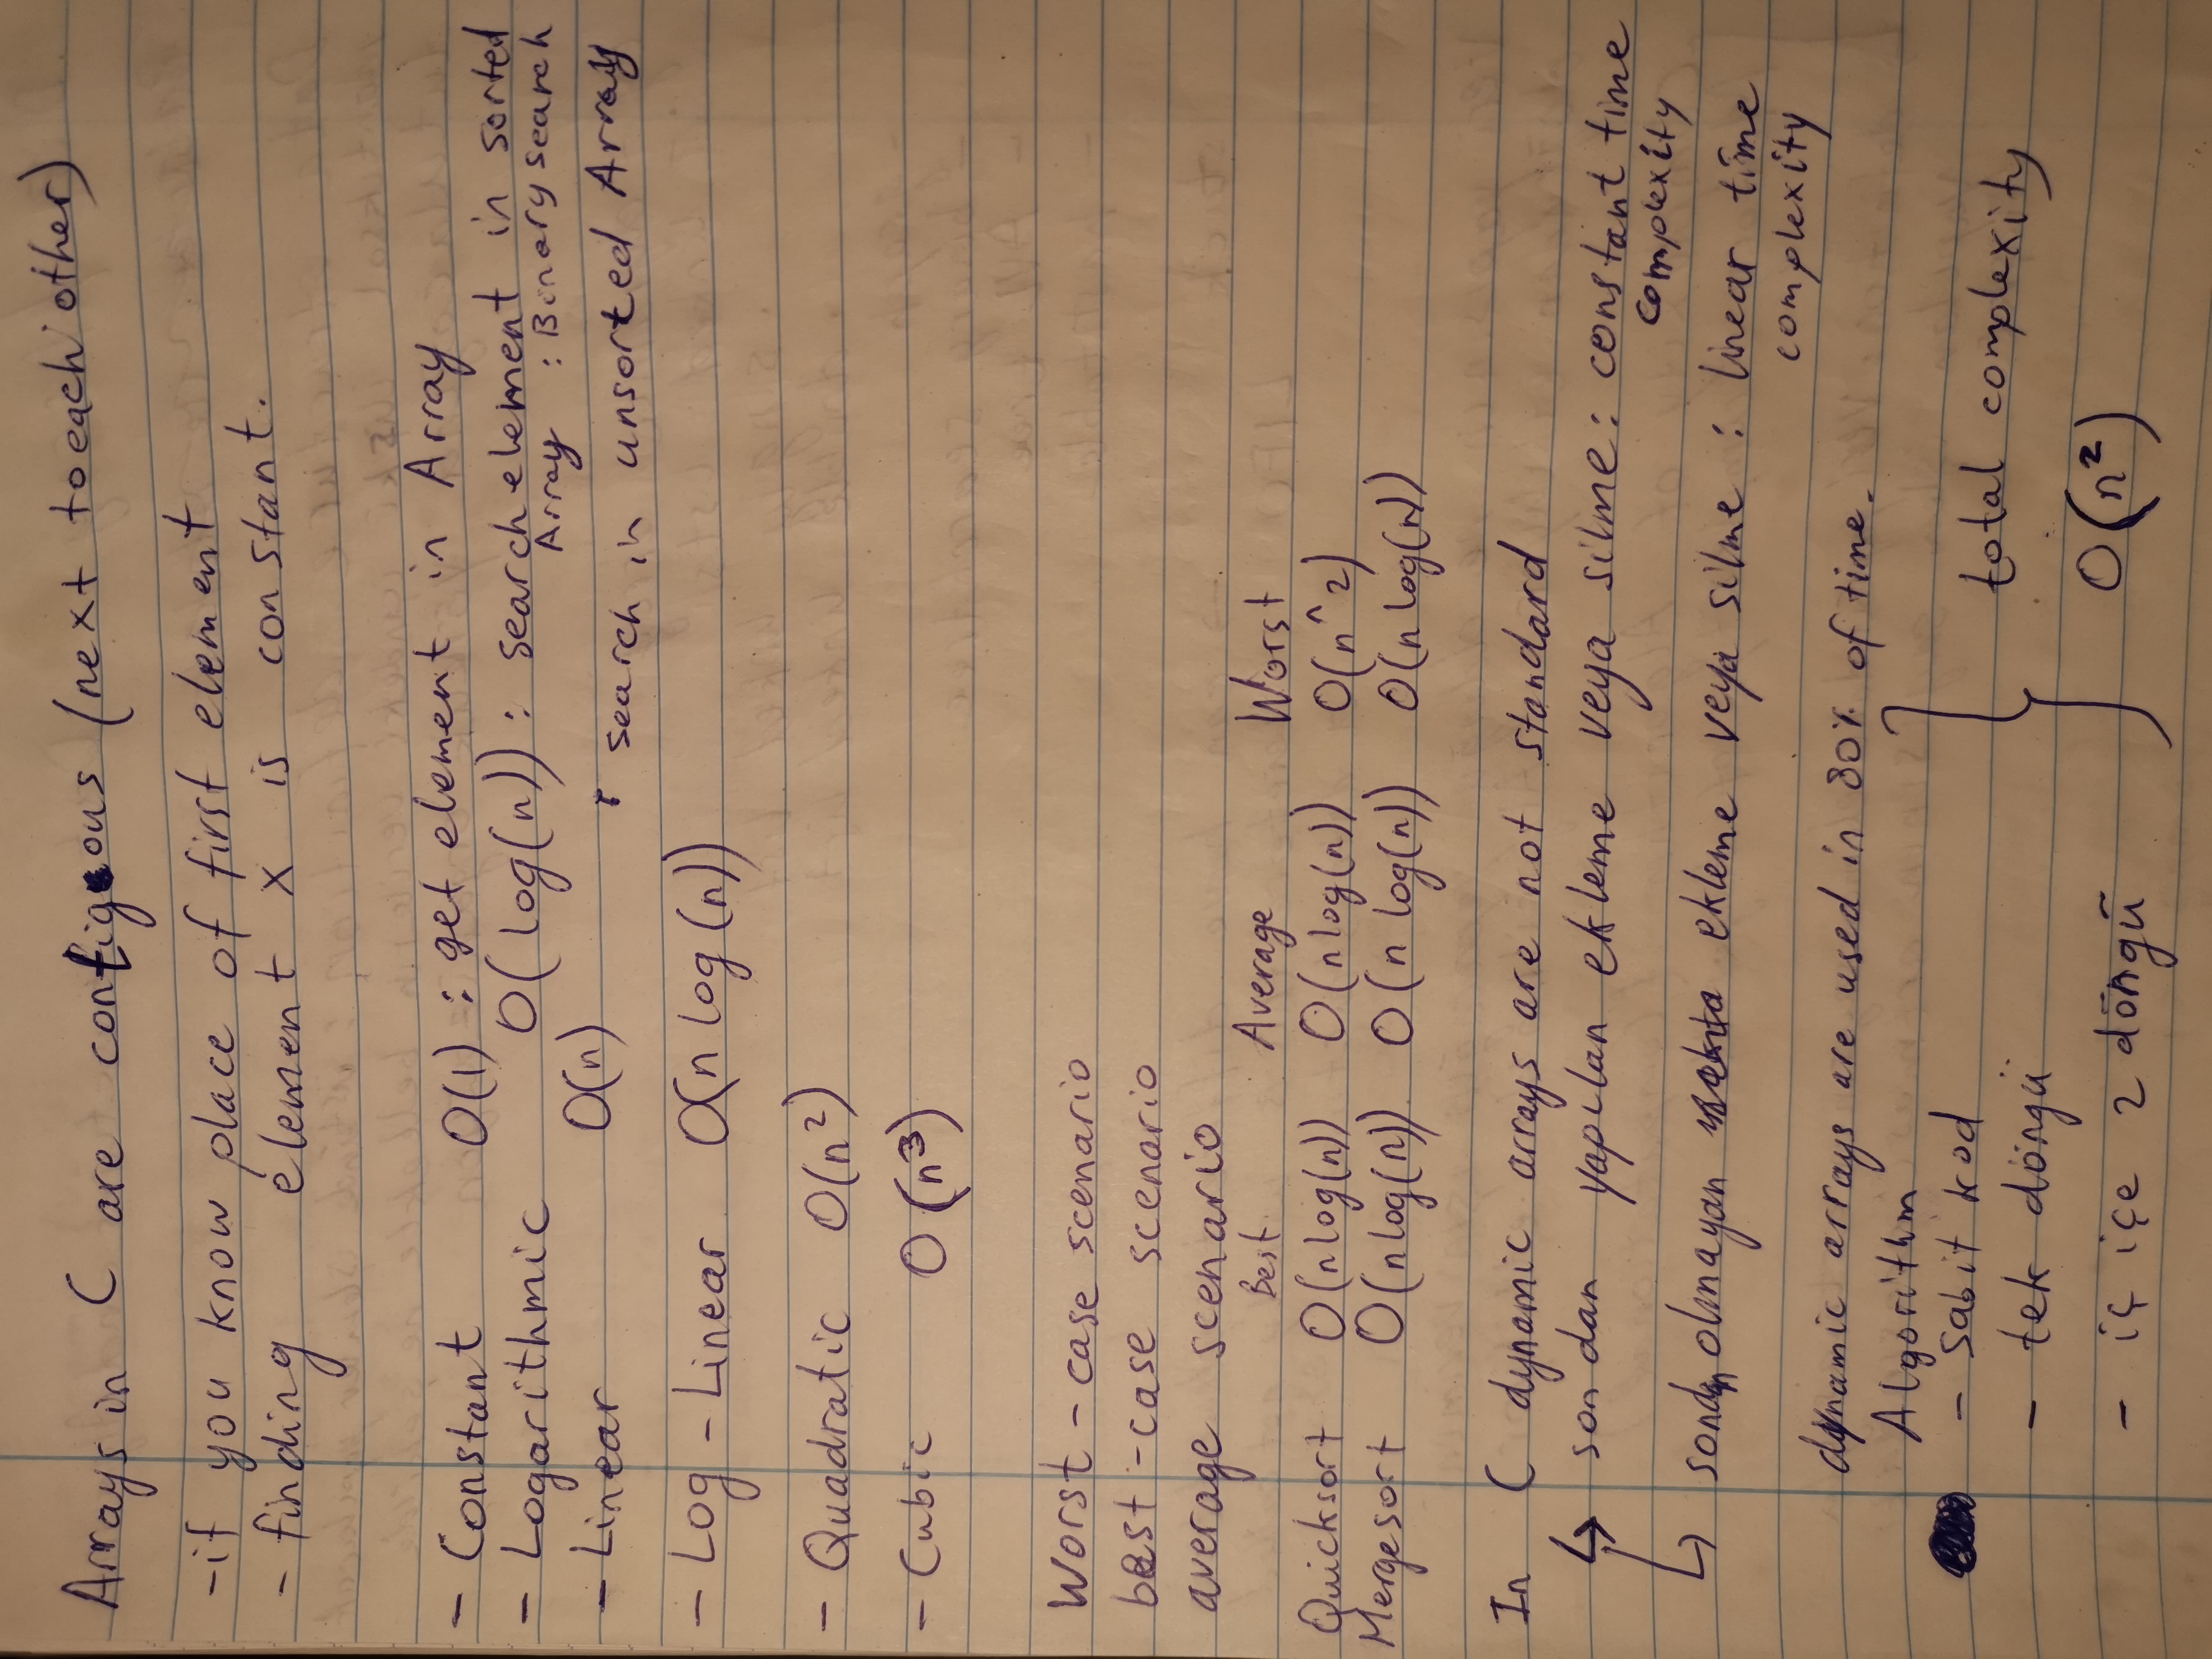 Arrays in C are contiguous (next to each other)
-if you know place of first element
- finding element x is constant.
- Constant O(1) : get element in Array
- Logarithmic O(log(n)) : search element in sorted
Array : Binary search
- Linear O(n) : search in unsorted Array
- Log - Linear O(n log(n))
- Quadratic O(n²)
- Cubic O(n³)
Worst - case scenario
best - case scenario
average scenario
Best Average Worst
Quicksort O(nlog(n)) O(nlog(n)) O(n^2)
Mergesort O(nlog(n)) O(n log(n)) O(n log(n))
In C dynamic arrays are not standard
↳ sondan yapılan ekleme veya silme : constant time
complexity
↳ sondan olmayan ekleme veya silme : linear time
complexity
dynamic arrays are used in 80% of time.
Algorithm
- Sabit kod
- tek döngü
- iç içe 2 döngü
total complexity
O(n²)